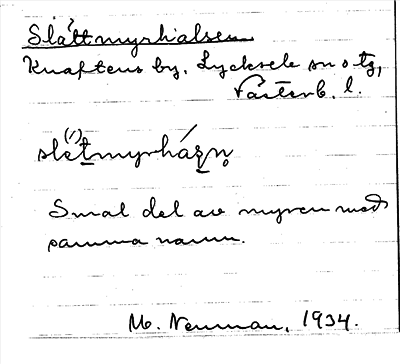 Slåttmyrhalsen
Knaftens by, Lycksele sn o tg,
Västerb. l.
Smal del av myren med
samma namn.
M. Newman, 1934.